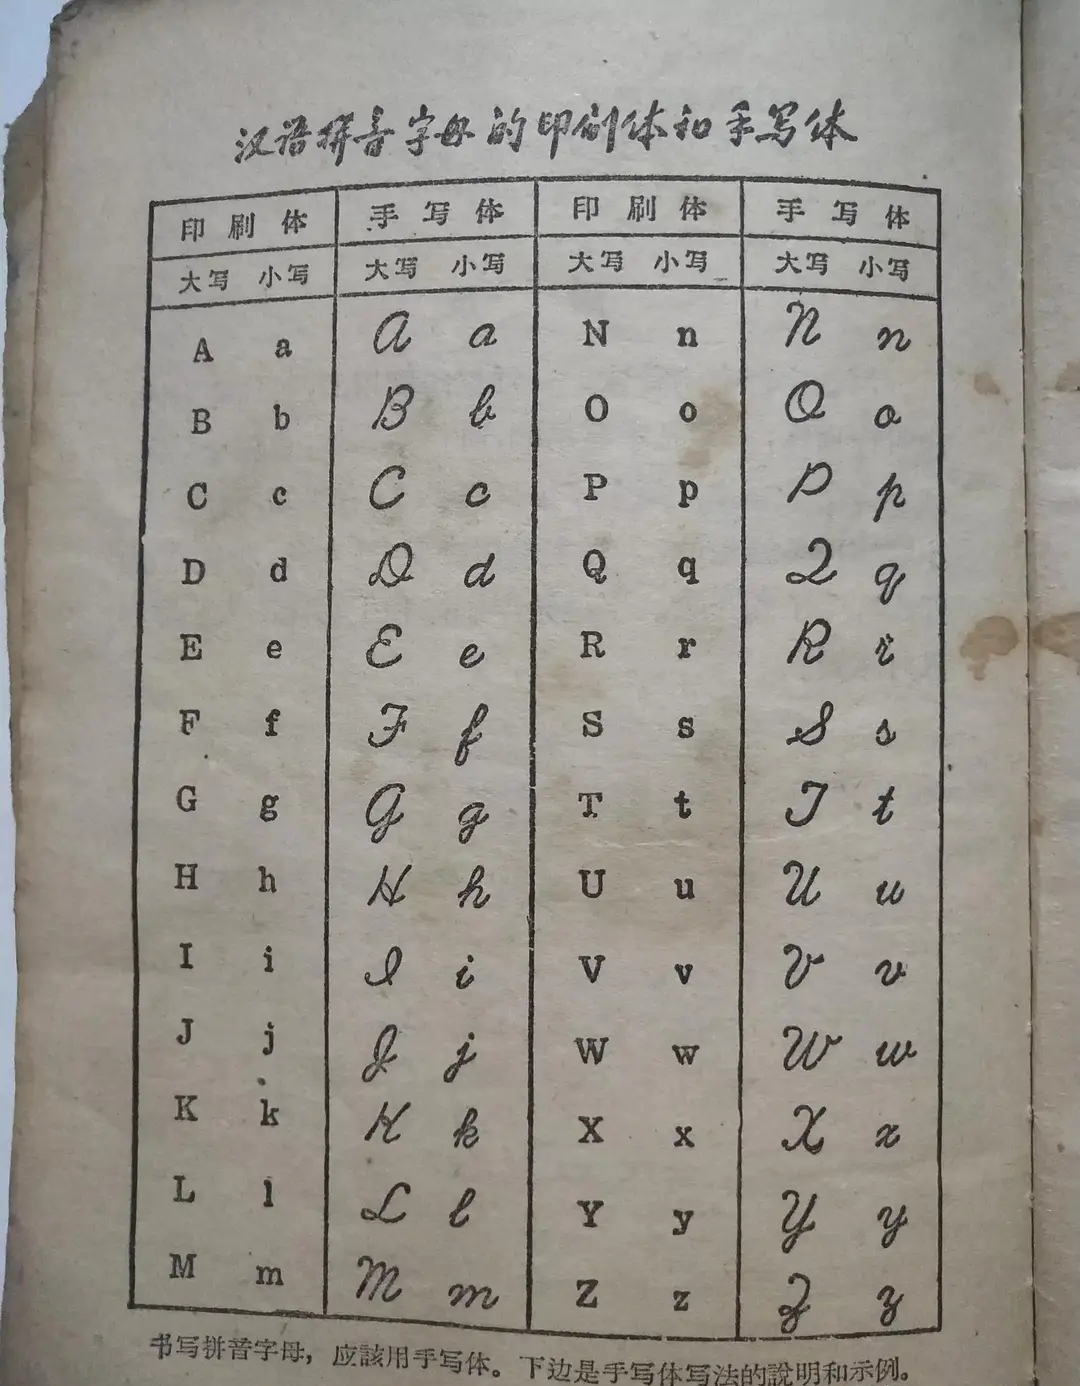 汉语拼音字母的印刷体和手写体
印刷体 手写体 印刷体 手写体
大写 小写 大写 小写 大写 小写 大写 小写
A a A a N n N n
B b B b O o O o
C c C c P p P p
D d D d Q q Q q
E e E e R r R r
F f F f S s S s
G g G g T t T t
H h H h U u U u
I i I i V v V v
J j J j W w W w
K k K k X x X x
L l L l Y y Y y
M m M m Z z Z z
书写拼音字母，应該用手写体。下边是手写体写法的說明和示例。